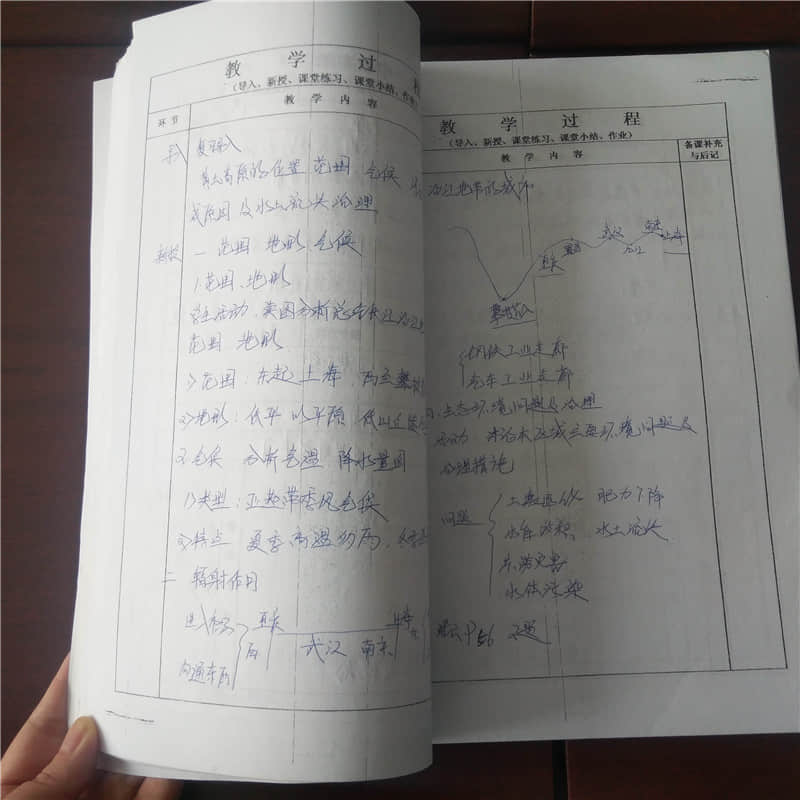 教 学 过 程
（导入、新授、课堂练习、课堂小结、作
环 节
教 学 内 容
导入 复习导入
黄土高原的位置 范围 气候
成原因及水土流失治理
新授 一 范围 地形 气候
1.范围、地形
学生活动、读图分析总结长江沿江
范围 地形
1>范围：东起上海，西至攀枝
2>地形：低平 以平原 低山丘陵
2、气候 分析气温、降水量图
1>类型：亚热带季风气候
2>特点 夏季高温多雨，冬季
二 辐射作用
沟通东西
重庆
武汉 南京
上海
教 学 过 程
（导入、新授、课堂练习、课堂小结、作业）
教 学 内 容
备课补充
与后记
沿江地带的城市
攀枝花
重庆
宜昌
武汉
九江
南京
上海
钢铁工业走廊
汽车工业走廊
生态环境问题及治理
活动 讨论本区域主要环境问题及
治理措施
问题
土壤退化 肥力下降
水土流失
洪涝灾害
水体污染
P56